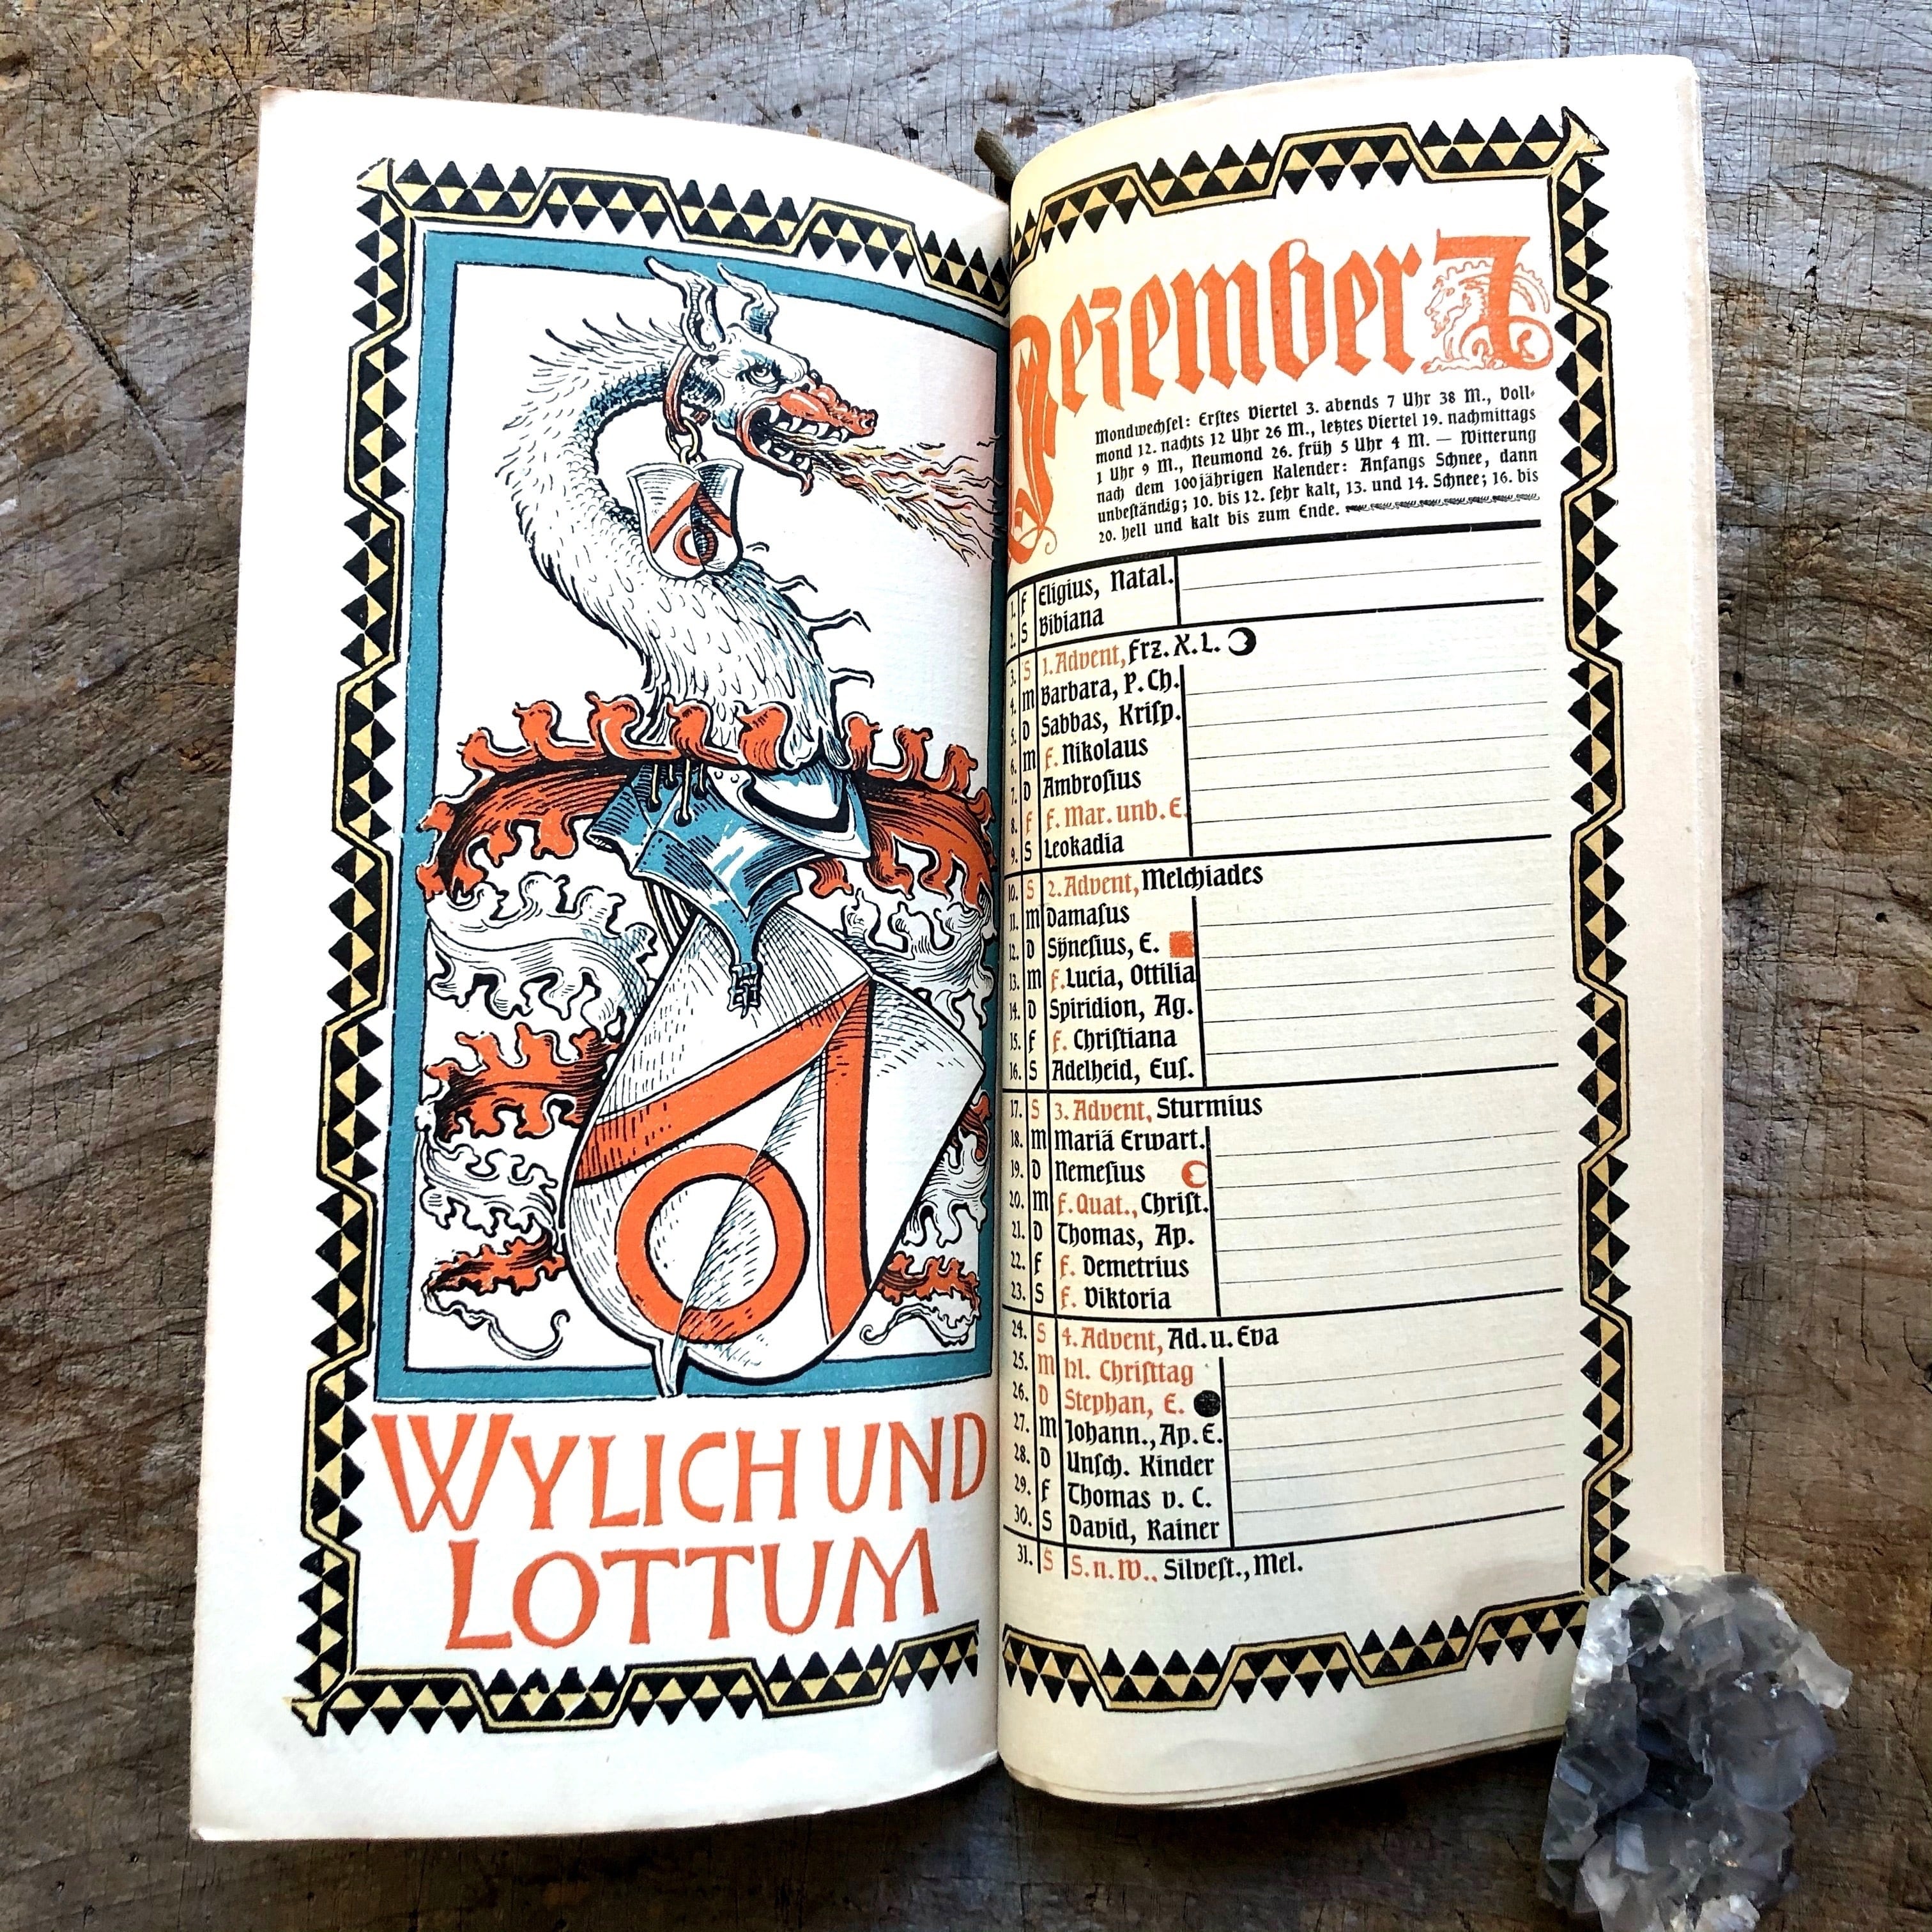 WYLICH UND
LOTTUM
Dezember
Mondwechſel: Erſtes Viertel 3. abends 7 Uhr 38 M., Voll-
mond 12. nachts 12 Uhr 26 M., letztes Viertel 19. nachmittags
1 Uhr 9 M., Neumond 26. früh 5 Uhr 4 M. — Witterung
nach dem 100jährigen Kalender: Anfangs Schnee, dann
unbeſtändig; 10. bis 12. ſehr kalt, 13. und 14. Schnee; 16. bis
20. hell und kalt bis zum Ende.
1. F Eligius, Natal.
2. S Bibiana
3. S 1. Advent, Frz. X. L.
4. M Barbara, P. Ch.
5. D Sabbas, Kriſp.
6. M f. Nikolaus
7. D Ambroſius
8. F f. Mar. unb. E.
9. S Leokadia
10. S 2. Advent, Melchiades
11. M Damaſus
12. D Syneſius, E.
13. M f. Lucia, Ottilia
14. D Spiridion, Ag.
15. F f. Chriſtiana
16. S Adelheid, Euſ.
17. S 3. Advent, Sturmius
18. M Mariä Erwart.
19. D Nemeſius
20. M f. Quat., Chriſt.
21. D Thomas, Ap.
22. F f. Demetrius
23. S f. Viktoria
24. S 4. Advent, Ad. u. Eva
25. M hl. Chriſttag
26. D Stephan, E.
27. M Johann., Ap. E.
28. D Unſch. Kinder
29. F Thomas v. C.
30. S David, Rainer
31. S S. n. W., Silveſt., Mel.